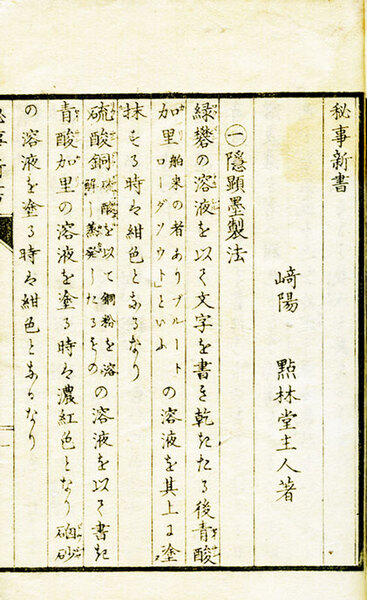 秘事新書
﨑陽　點林堂主人著
㊀隱顯墨製法
緑礬の溶液を以て文字を書き乾きたる後青酸
加里 舶来の者ありブルートローダソウト」といふ の溶液を其上に塗
抹する時は紺色となるなり
硫酸銅 硫酸を以て銅粉を溶解し蒸発したるもの の溶液を以て書き
青酸加里の溶液を塗る時は濃紅色となり硇砂
の溶液を塗る時は紺色となるなり